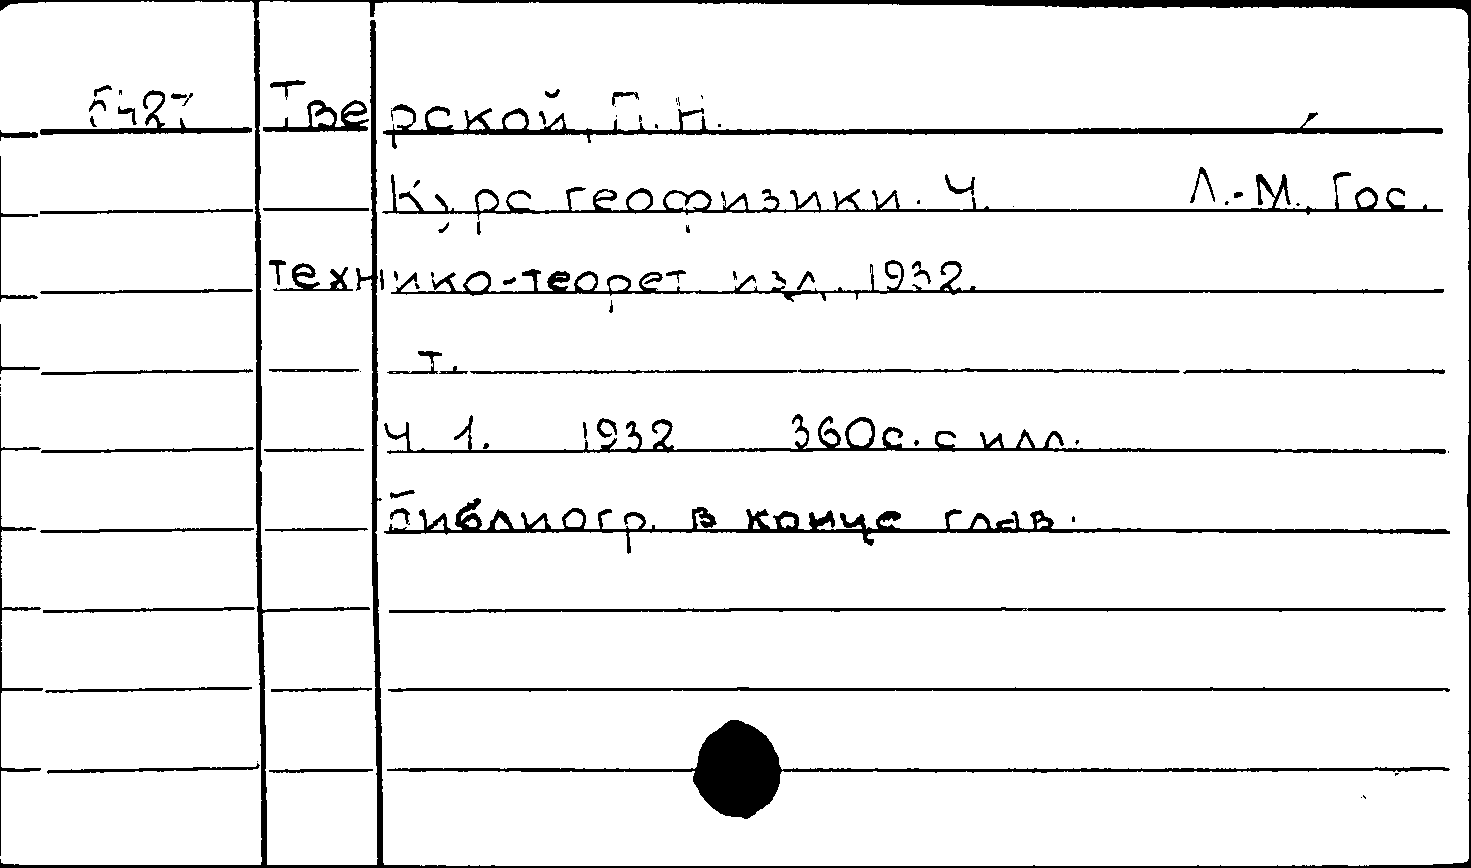 5427 Тверской, П. Н.
Курс геофизики. Ч. Л.-М., Гос.
технико-теорет. изд., 1932.
т.
Ч. 1. 1932 360с. с илл.
Библиогр. в конце глав.